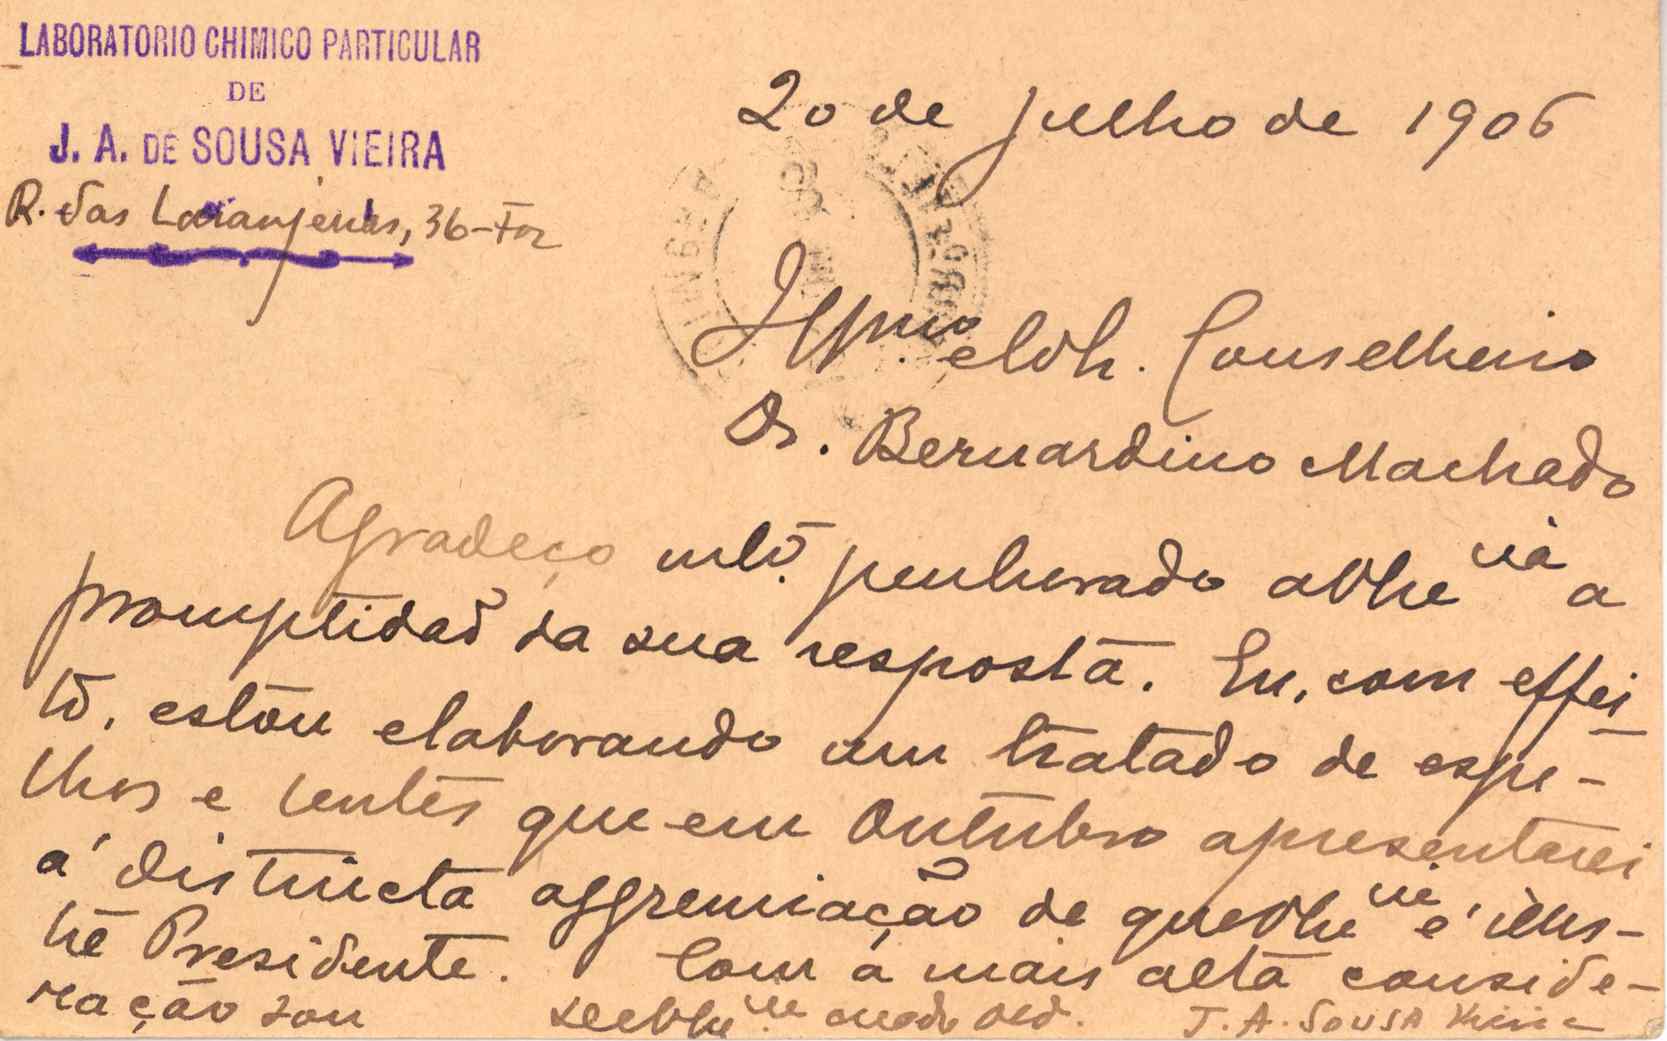 LABORATORIO CHIMICO PARTICULAR
DE
J. A. DE SOUSA VIEIRA
R. das Laranjeiras, 36-Foz
20 de Julho de 1906
Conselheiro
Dr. Bernardino Machado
Agradeço mto. penhorado a a
promptidão da sua resposta. Eu, com effei
to, estou elaborando um tratado de espe-
lhos e lentes que em Outubro apresentarei
á distincta aggremiação de que é illus-
tre Presidente. Com a mais alta conside-
ração sou J. A. SOUSA Vieira